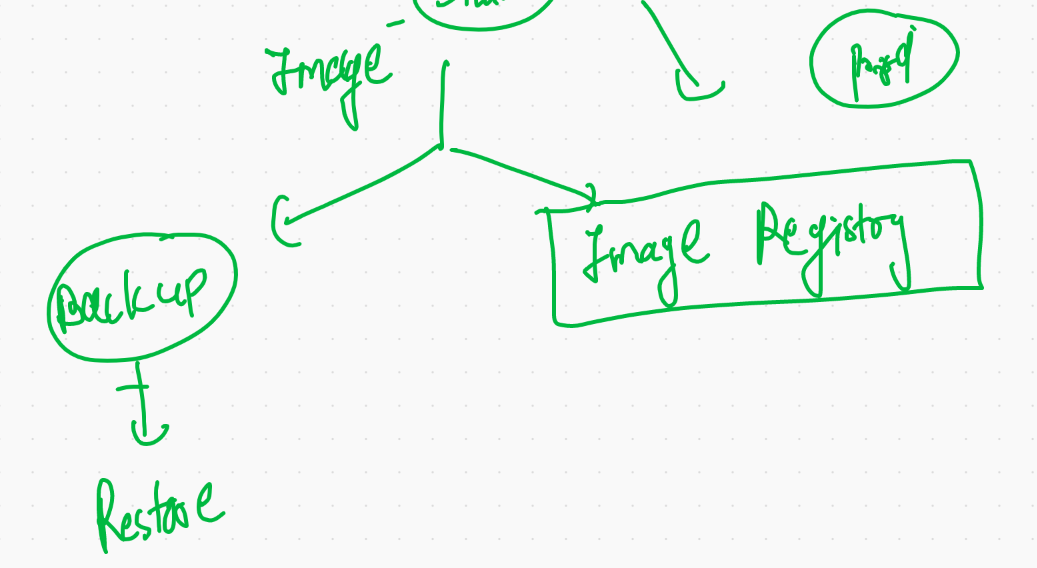 Image
prod
Image Registry
Backup
Restore